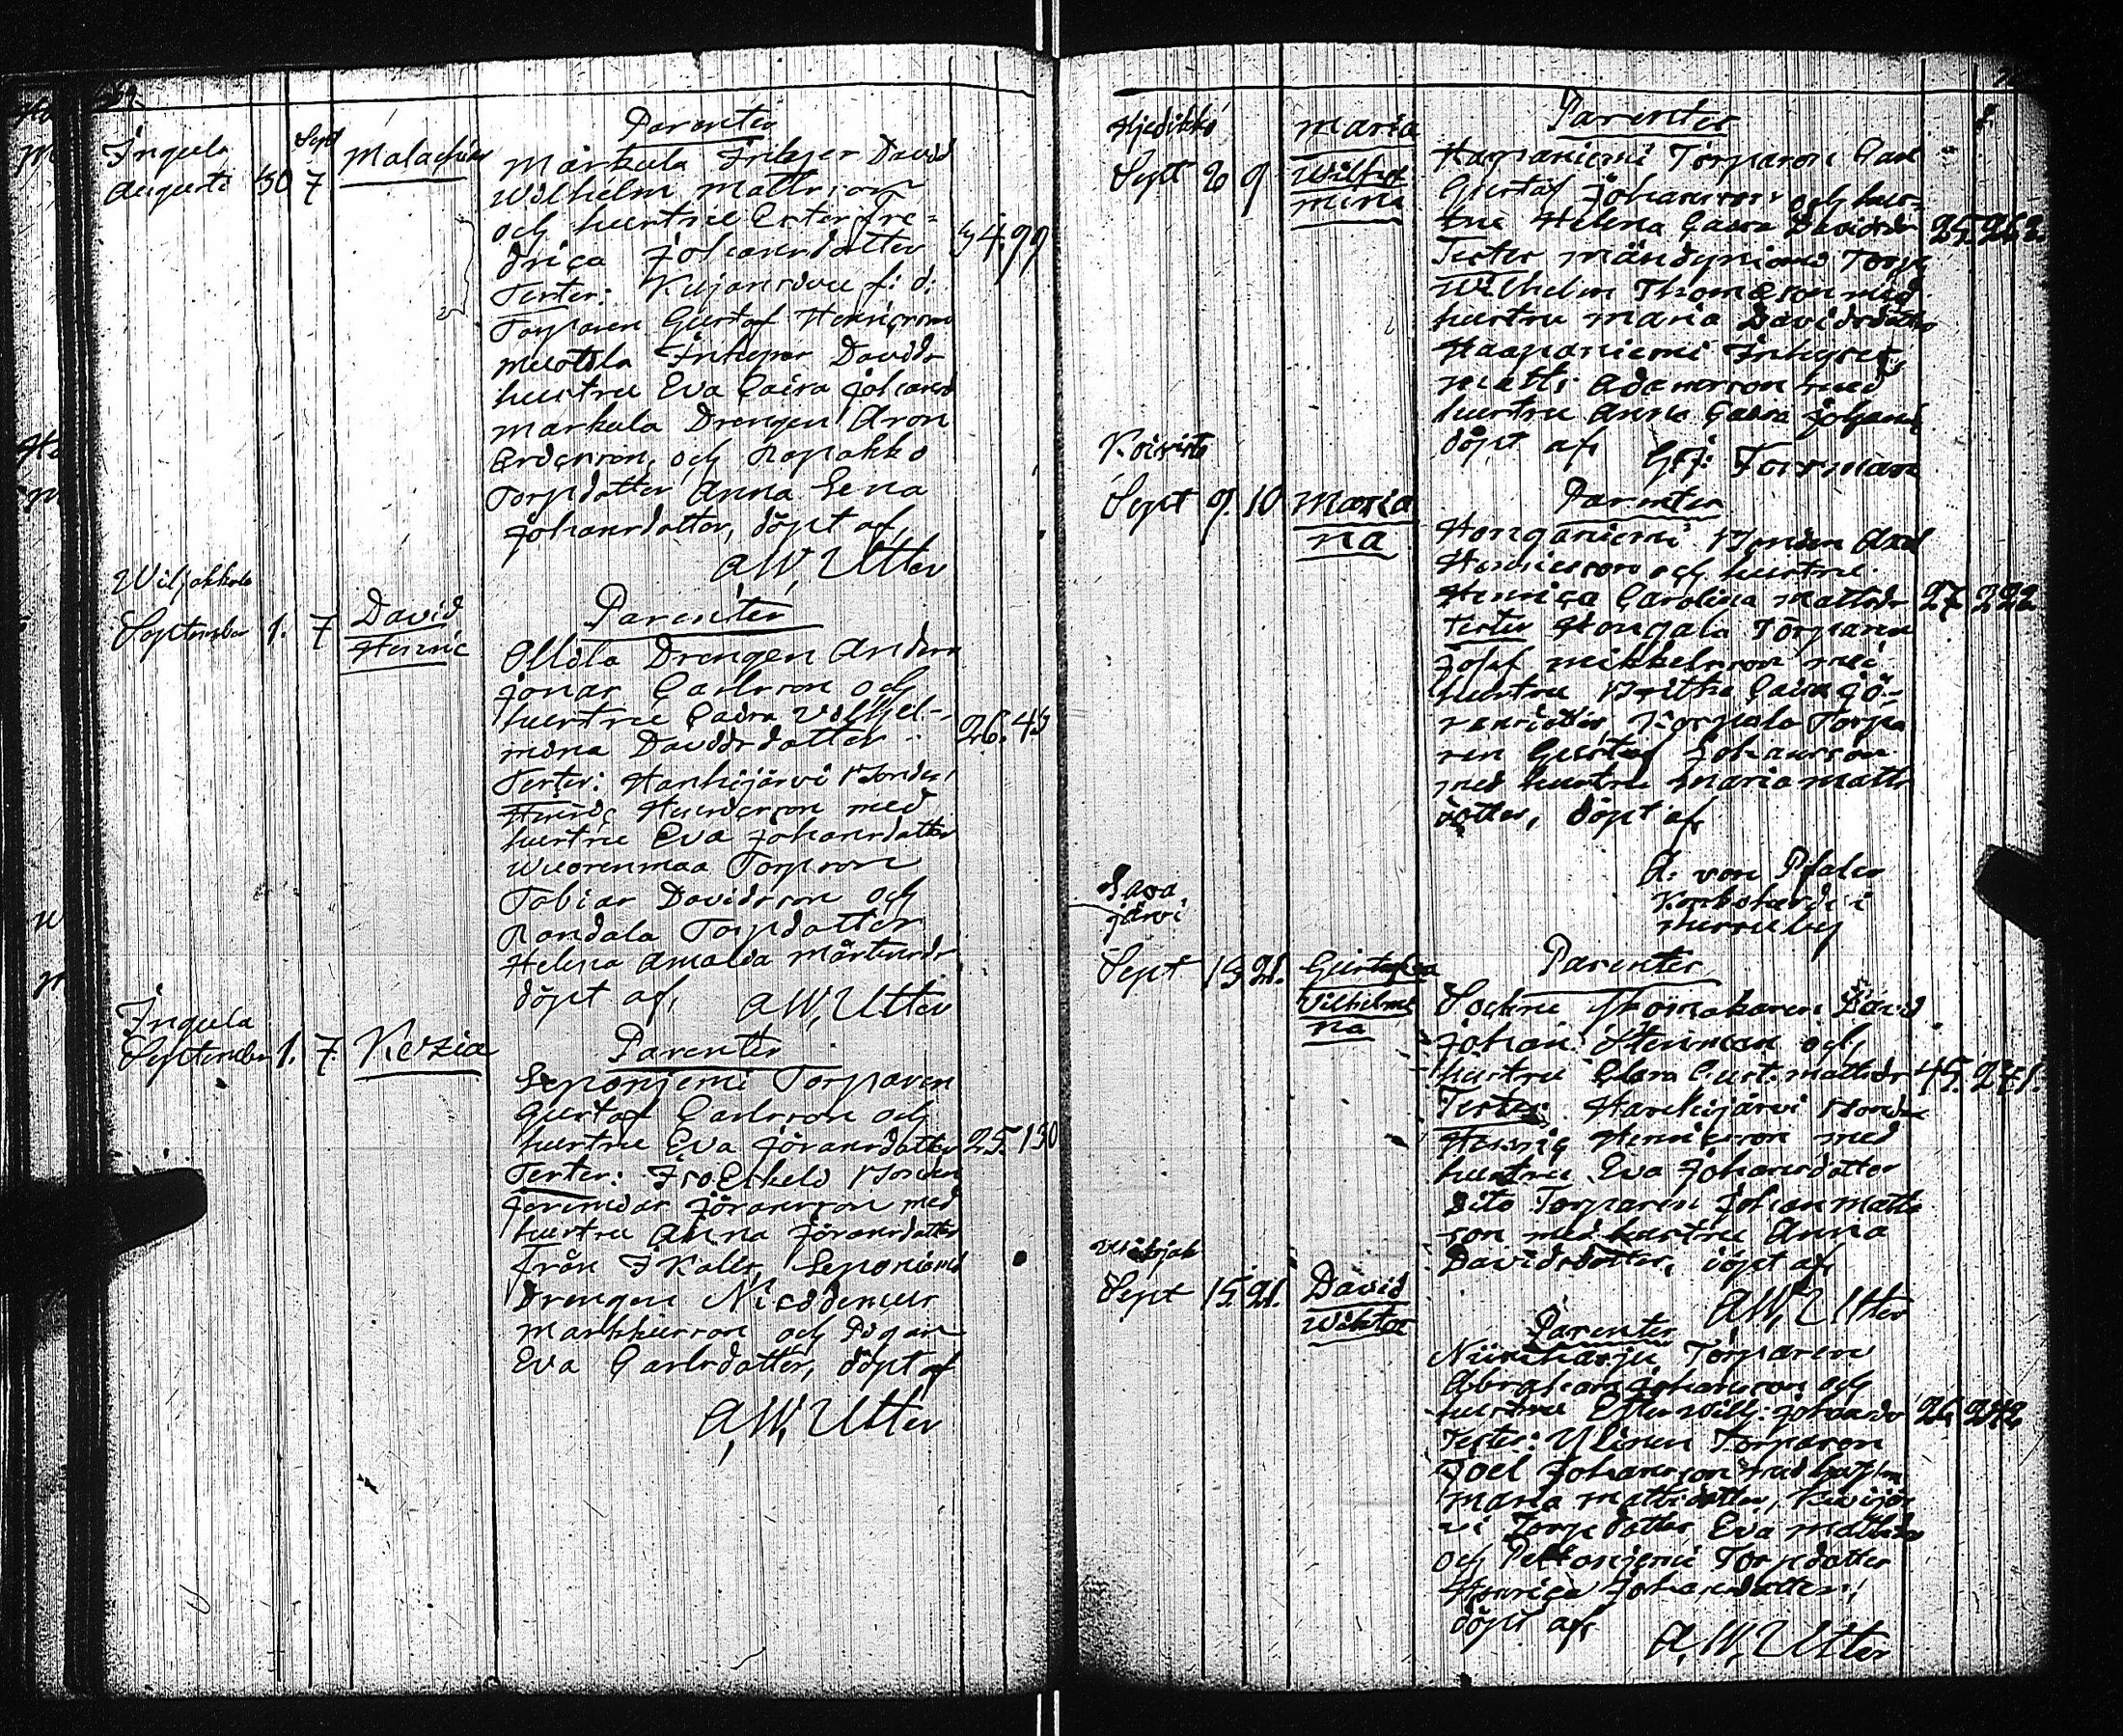 Sept
Ingula
Augusti 30 7 Malachias
Parenter
Markula Inhyser David
Wilhelm Mattsson
och hustrue Ester Fre=
drica Johansdotter 34.99
Tester: f: d:
Torparen Gustaf Henricsson
Inhyser Davids
hustrue Eva Caisa Johansd
Markula Drengen Aron
Anderson, och
Torpdotter Anna Lena
Johansdotter, döpt af
A,W, Utter
Wiljakkala
September 1. 7 David
Henric
Parenter
Ollila Drengen Anders
Jonas Carlsson och
hustrue Caisa Vilhjel-
mina Davidsdotter 26.45
Tester: Hanhijärvi Bonden
Henric Hendersson med
hustrue Eva Johansdotter
Wuorenmaa Torpson
Tobias Davidsson och
Torpdotter
Helena Amalia Mårtensdr
döpt af, A,W, Utter
Ingula
September 1. 7 Kezia
Parenter
Leponjemi Torparen
Gustaf Carlsson och
hustrue Eva Göransdotter 25.130
Tester: Bonden
Göransson med
hustrue Anna Göransdotter
från Ikalis, Leponiemi
Drengen Nicodemus
Markkusson och Pigan
Eva Carlsdotter, döpt af
A,W, Utter
Sept 6 9 Maria
Wilhel
mina
Parenter
Haapaniemi Torparen Carl
Gustaf Johansson och hus-
true Helena Caisa Davidsdr 25.262
Tester Mändyniemi Torp
Wilhelm Thomasson med
hustrue Maria Davidsdotter
Haapaniemi Inhyser
Matts Adamsson med
hustrue Anna Caisa Johansd
döpt af G: J: Forsman
Koivisto
Sept 9 10 Maria
na
Parenter
Honganiemi Bonden Axel
Henricsson och hustrue
Henrica Carolina Mattsdr 27 222
Tester Hongala Torparen
Josef Mikkelsson med
hustrue Britha Caisa Jö-
ransdotter, Torpa
ren Gustaf Johansson
med hustrue Maria Matts
dotter, döpt af
A: von Pfaler
i
Sava
järvi
Sept 15 21. Gustafva
Vilhelmi
na
Parenter
Sockne Skomakaren David
Johan Stenman och
hustrue Clara Gust: Mattsdr 45.271.
Tester: Hanhijärvi Bonden
Henric Henricsson med
hustrue Eva Johansdotter
dito Torparen Johan Matts
son med hustrue Anna
Davidsdotter, döpt af
A,W, Utter
Sept 15 21. David
Wiktor
Parenter
Niiniharju Torparen
Abraham Johansson och
hustrue Ester Wilh: Johansdr 26 242
Tester: Ylinen Torparen
Joel Johansson med
Maria Mattsdotter,
vi Torpdotter Eva
och Torpdotter
Henrica Johansdotter,
döpt af
A,W, Utter